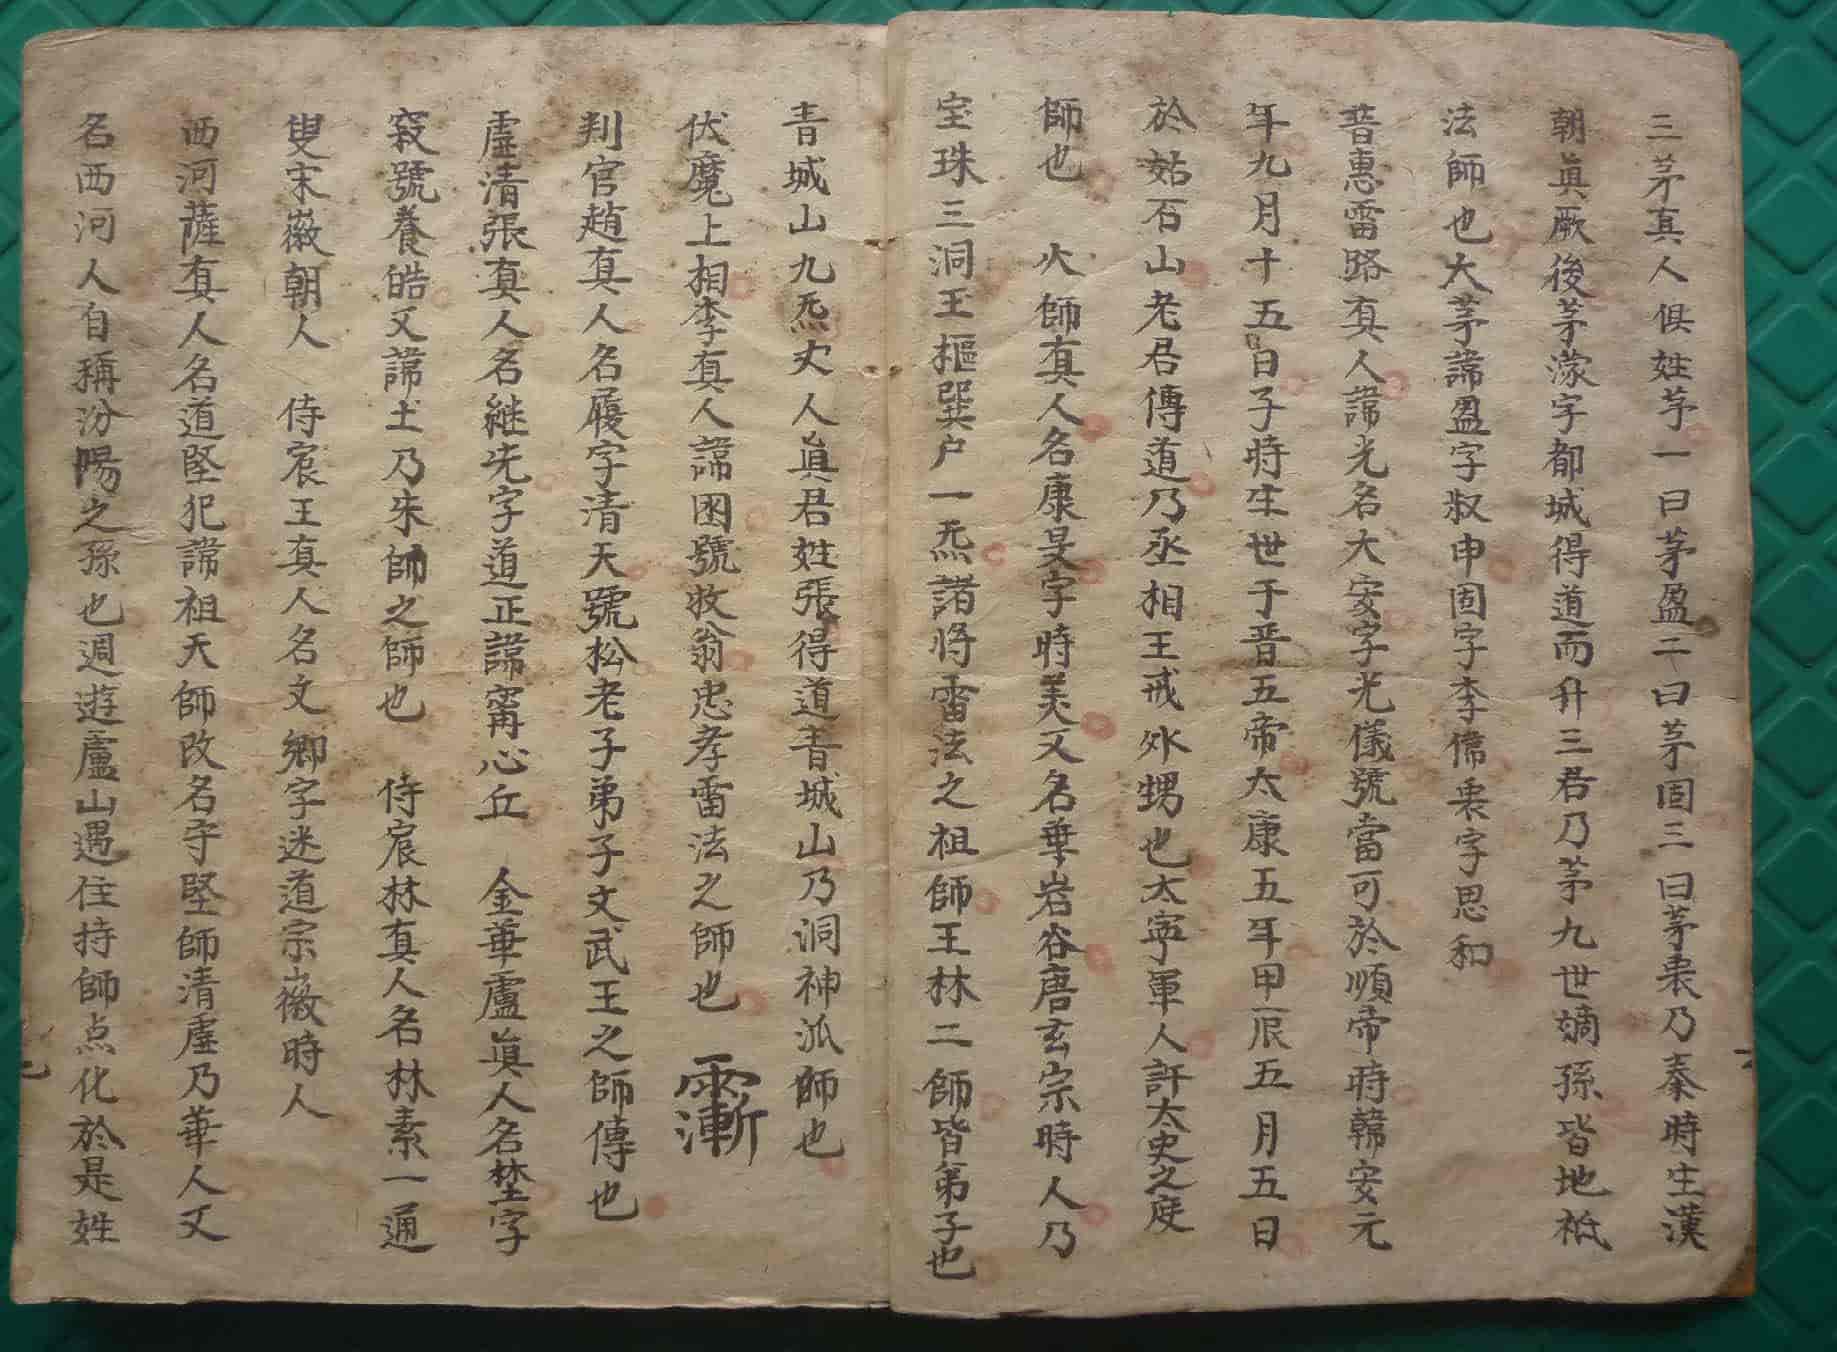 三茅真人俱姓茅一曰茅盈二曰茅固三曰茅衷乃秦時生漢
朝眞厥後茅濛字都城得道而升三君乃茅九世嫡孫皆地袛
法師也大茅諱盈字叔申固字李儒衷字思和
普惠雷路真人諱光名大安字光儀號當可於順帝時韓安元
年九月十五日子時生世于晋五帝太康五年甲辰五月五日
於姑石山老君傳道乃丞相王戒外甥也太寧軍人許太史之庭
師也 火師真人名康旻字時美又名華岩谷唐玄宗時人乃
宝珠三洞玉樞巽户一炁諸将雷法之祖師王林二師皆弟子也
青城山九炁丈人眞君姓張得道青城山乃洞神派師也
伏魔上相李真人諱囦號牧翁忠孝雷法之師也
判官趙真人名履字清天號松老子弟子文武王之師傳也
虛清張真人名継先字道正諱寗心丘 金華盧眞人名埜字
㝡號養皓又諱士乃朱師之師也 侍宸林真人名林素一通
叟宋徽朝人 侍宸王真人名文卿字迷道宗徽時人
西河薩真人名道堅犯諱祖天師改名守堅師清虛乃華人又
名西河人自稱汾陽之孫也週遊盧山遇住持師点化於是姓